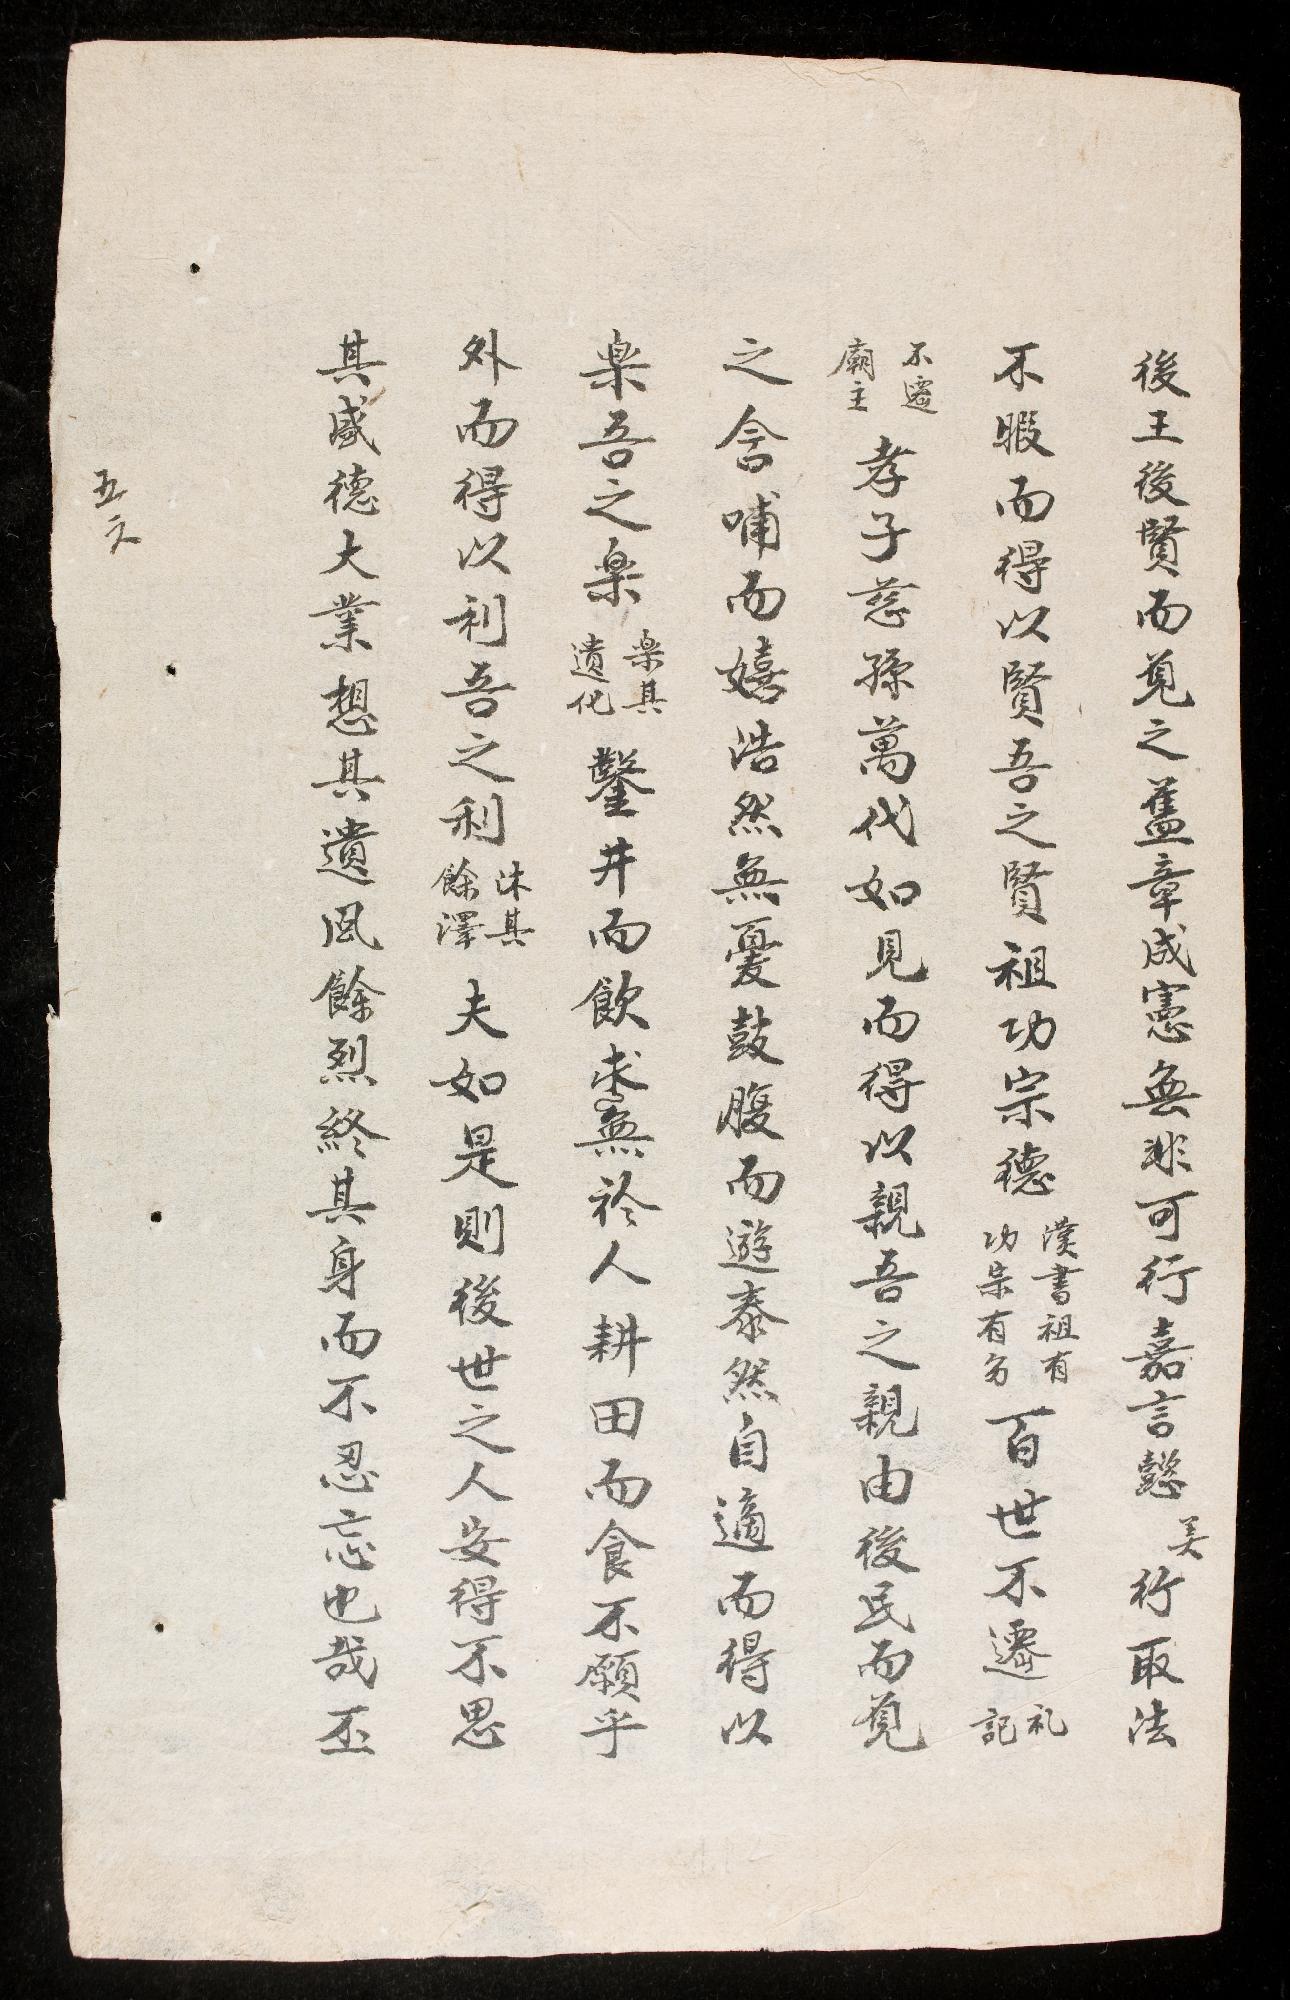 後王後賢而覓之舊章成憲無非可行嘉言懿美行取法
不暇而得以賢吾之賢祖功宗德漢書祖有功宗有多百世不遷礼記
不遷廟主孝子慈孫萬代如見而得以親吾之親由後民而覓
之含哺而嬉浩然無憂鼓腹而遊泰然自適而得以
楽吾之楽楽其遺化鑿井而飲求無於人耕田而食不願乎
外而得以利吾之利沐其餘澤夫如是則後世之人安得不思
其盛德大業想其遺风餘烈終其身而不忍忘也哉丕
五六